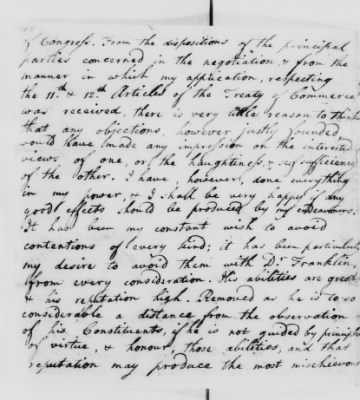 of Congress. From the dispositions of the principal
parties concerned in the negotiation, & from the
manner in which my application, respecting
the 11th & 12th Articles of the Treaty of Commerce
was received, there is very little reason to think
that any objections, however justly founded
would have made any impression on the interested
views of one, or the haughtiness, & self sufficiency
of the other. I have, however, done everything
in my power, & I shall be very happy if any
good effects should be produced by my endeavours.
It has been my constant wish to avoid
contentions of every kind; it has been particularly
my desire to avoid them with Dr Franklin,
from every consideration. His abilities are great
& his reputation high. Removed as he is to so
considerable a distance from the observation
of his Constituents, if he is not guided by principles
of virtue, & honour those abilities, and that
reputation may produce the most mischievous